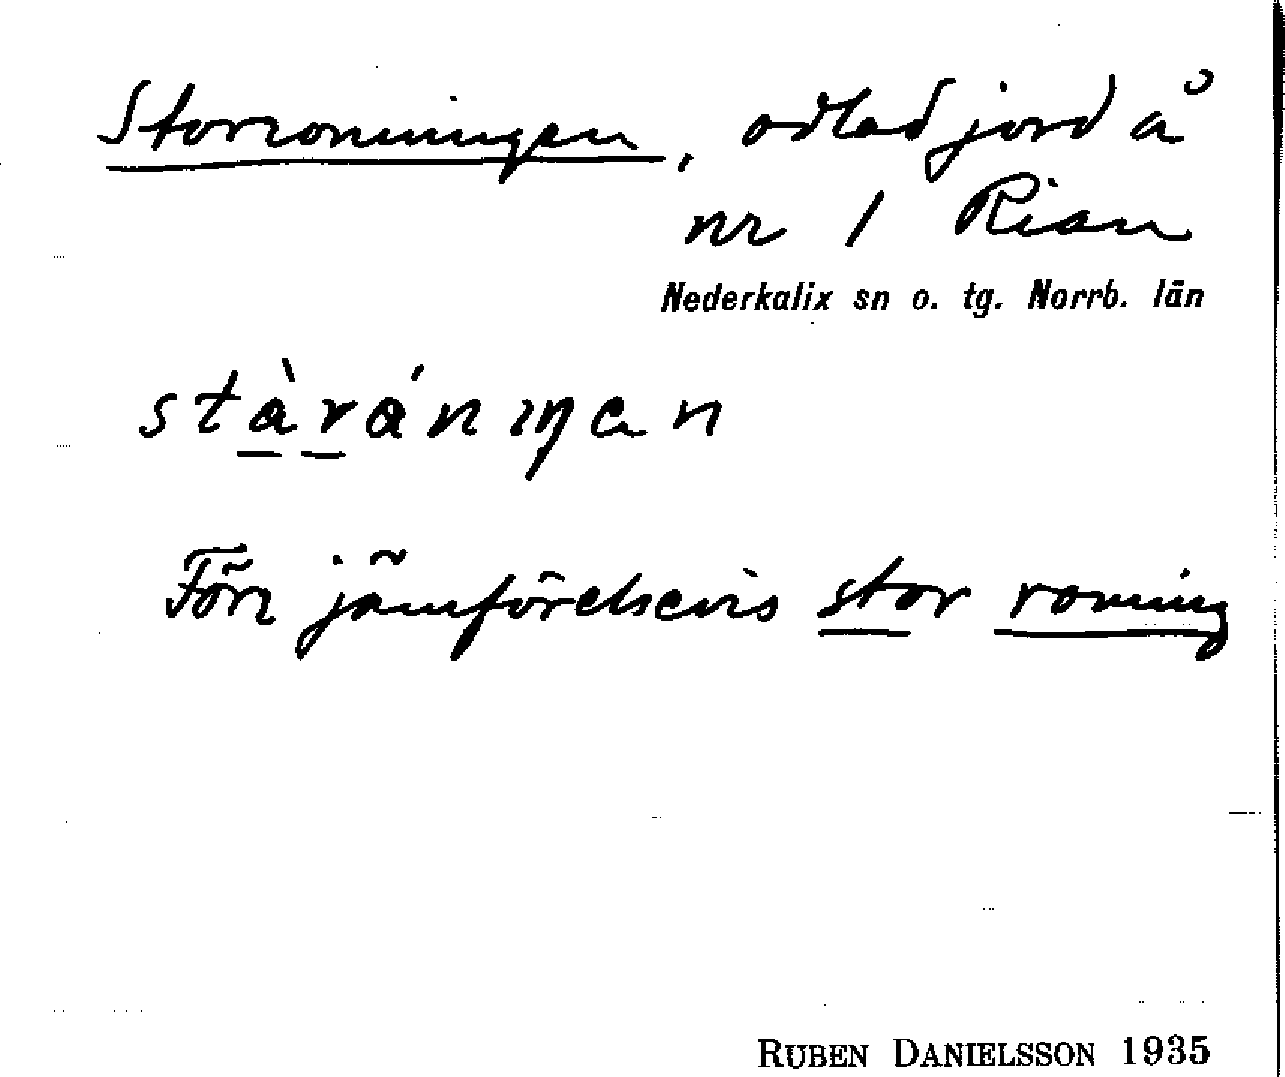 Storroningen, odlad jord å
nr 1 Rian
Nederkalix sn o. tg. Norrb. län
stàráningan
Förr jämförelsevis stor roning
RUBEN DANIELSSON 1935